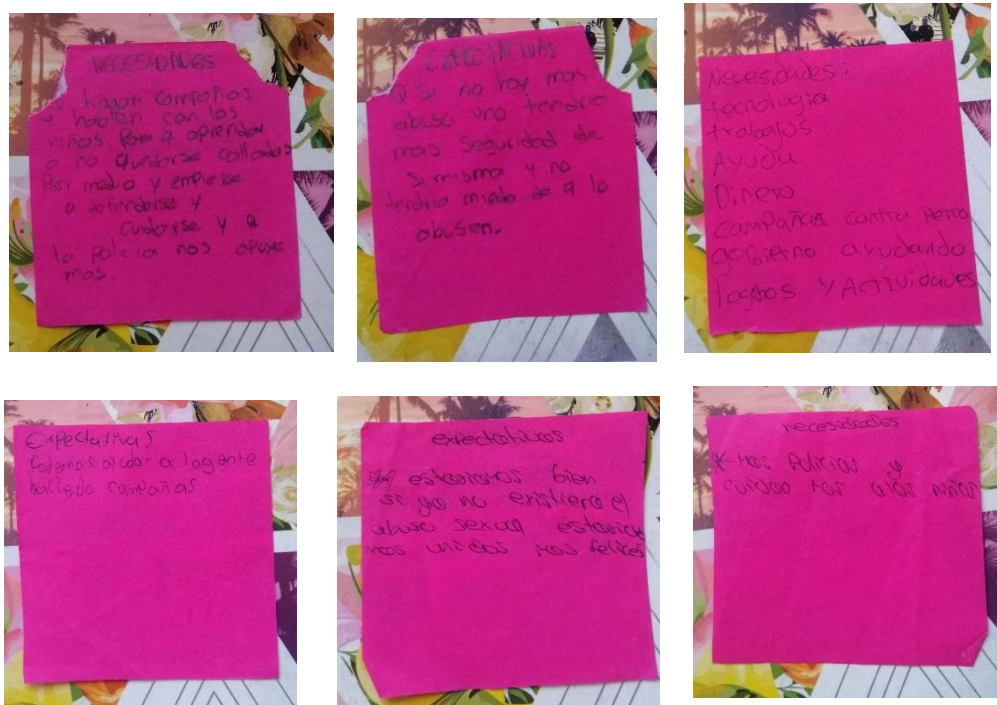 NECESIDADES
hagan campañas
y hablen con las
niñas Para q aprendan
a no quedarse calladas
Por miedo y empieze
a defenderse y
cuidarse y q
la policia nos apoye
mas.
EXPECTATIVAS
Q si no hay mas
abuso uno tendria
mas seguridad de
si misma y no
tendria miedo de q la
abusen.
Necesidades:
tecnologia
trabajos
Ayuda
Dinero
campañas contra
gobierno ayudando
logros y Actividades
Expectativas
Podemos aludar a lagente
haciendo campañas
expectativas
* estariamos bien
si ya no existiera el
abuso sexual estariamos
mas unidas mas felices
necesidades
* mas Policias y
cuidao mas alas niñas